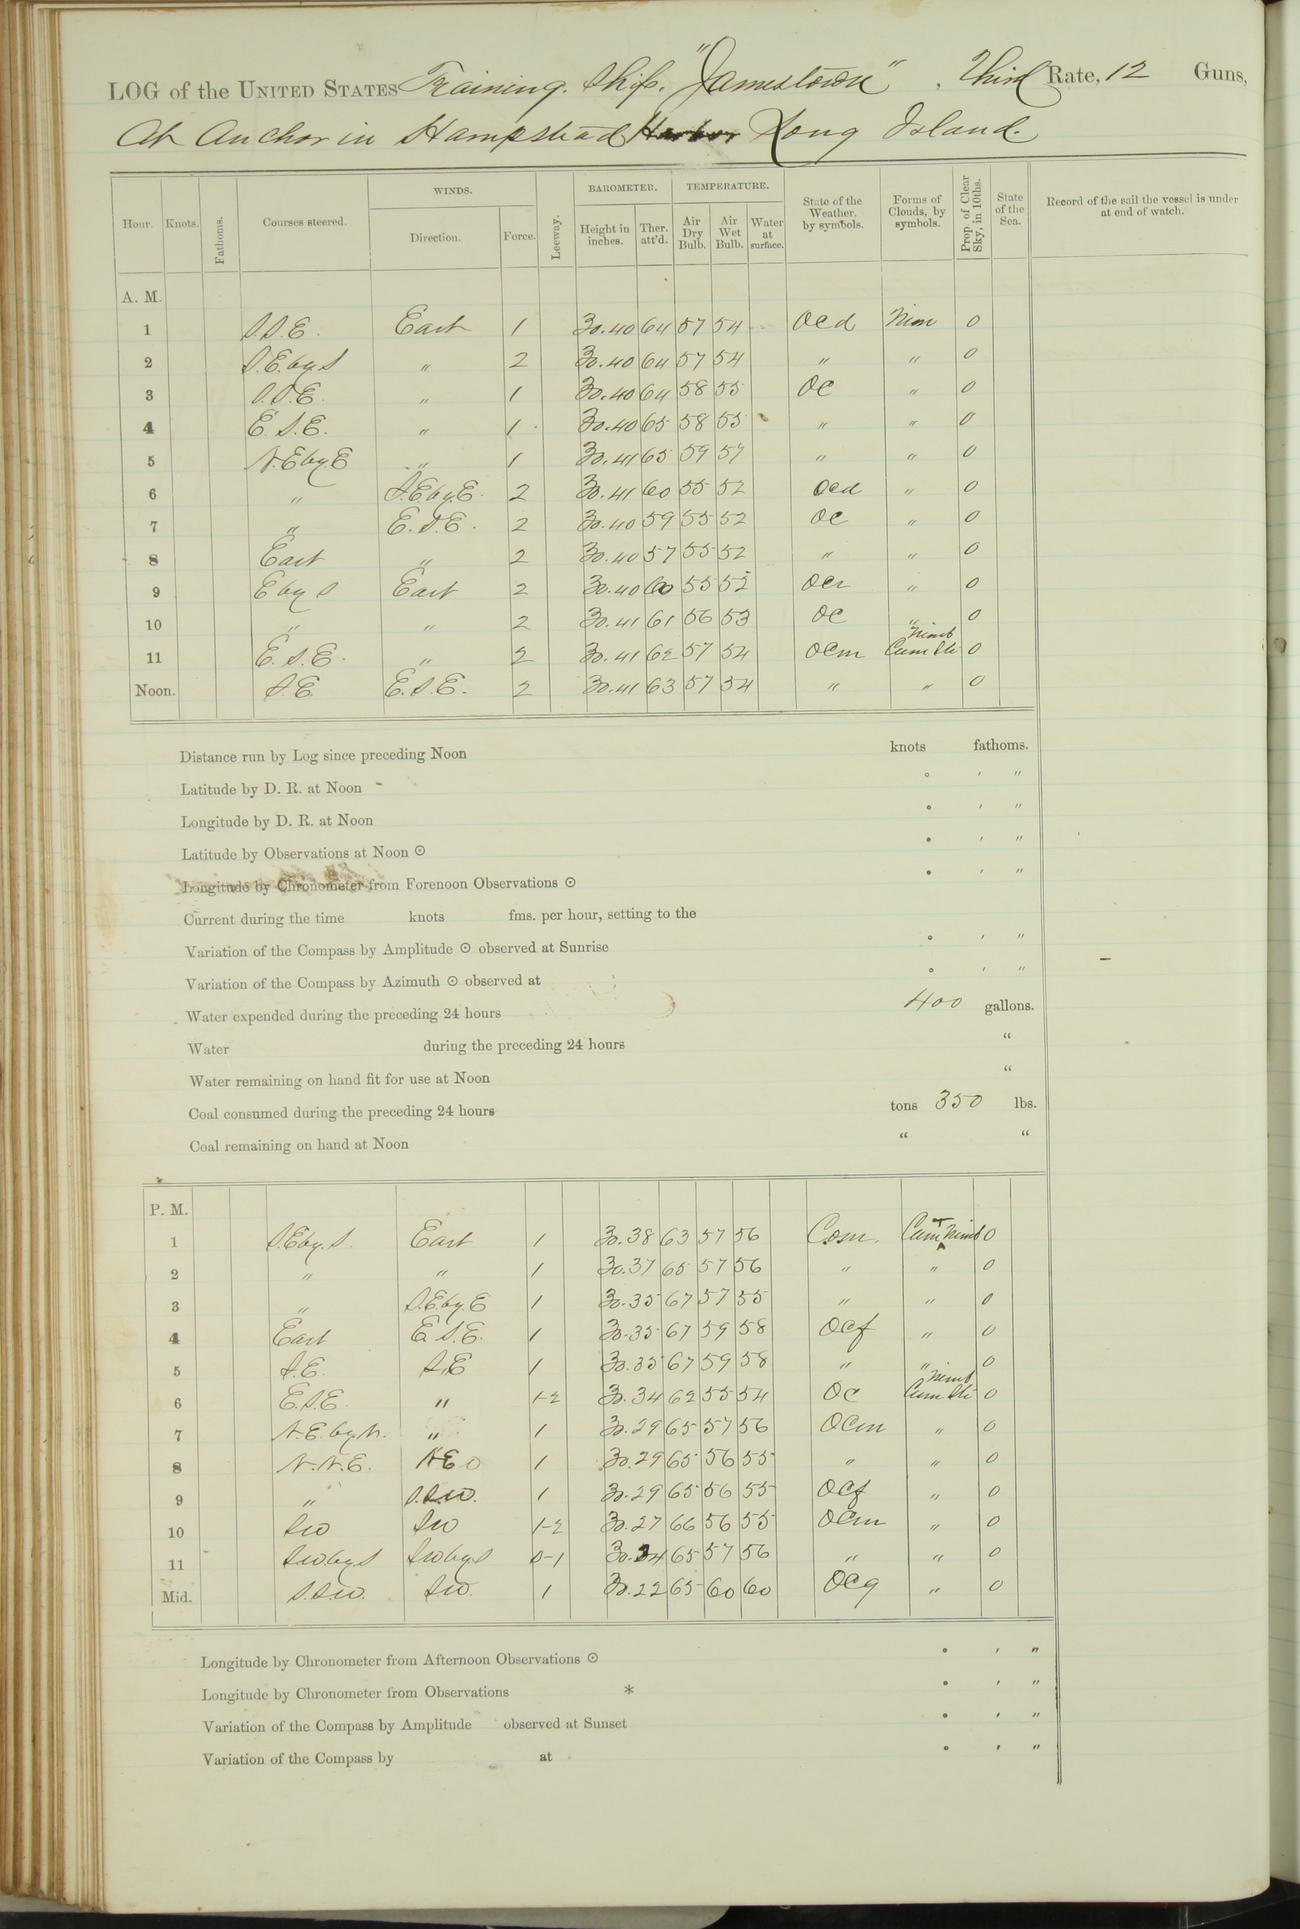 LOG of the UNITED STATES Training Ship "Jamestown", Third Rate, 12 Guns,
At Anchor in Hampstead Harbor Long Island.
Hour. Knots. Fathoms. Courses steered. WINDS. Direction. Force. Leeway. BAROMETER. Height in inches. Ther. att'd. TEMPERATURE. Air Dry Bulb. Air Wet Bulb. Water at surface. State of the Weather, by symbols. Forms of Clouds, by symbols. Prop. of Clear Sky, in 10ths. State of the Sea. Record of the sail the vessel is under at end of watch.
A. M.
1 S.S.E. East 1 30.40 64 57 54 Ocd Nim 0
2 S.E. by S " 2 30.40 64 57 54 " " 0
3 S.S.E. " 1 30.40 64 58 55 Oc " 0
4 E.S.E. " 1 30.40 65 58 55 " " 0
5 N.E by E " 1 30.41 65 59 57 " " 0
6 " S.E by E. 2 30.41 60 55 52 Ocd " 0
7 " E.S.E. 2 30.40 59 55 52 Oc " 0
8 East " 2 30.40 57 55 52 " " 0
9 E by S East 2 30.40 60 55 52 Ocr " 0
10 " " 2 30.41 61 56 53 Oc " 0
11 E.S.E. " 2 30.41 62 57 54 Ocm Nimb Cum Str 0
Noon. S.E. E.S.E. 2 30.41 63 57 54 " " 0
Distance run by Log since preceding Noon knots fathoms.
Latitude by D. R. at Noon ° ' "
Longitude by D. R. at Noon ° ' "
Latitude by Observations at Noon ⊙ ° ' "
Longitude by Chronometer from Forenoon Observations ⊙ ° ' "
Current during the time knots fms. per hour, setting to the
Variation of the Compass by Amplitude ⊙ observed at Sunrise ° ' "
Variation of the Compass by Azimuth ⊙ observed at ° ' "
Water expended during the preceding 24 hours 400 gallons.
Water during the preceding 24 hours "
Water remaining on hand fit for use at Noon "
Coal consumed during the preceding 24 hours tons 350 lbs.
Coal remaining on hand at Noon " "
P. M.
1 S.E by S. East 1 30.38 63 57 56 Cum Nimb 0
2 " " 1 30.37 65 57 56 " " 0
3 " S.E. by E 1 30.35 67 57 55 " " 0
4 East E.S.E. 1 30.35 67 59 58 Ocf " 0
5 S.E. S.E 1 30.35 67 59 58 " " 0
6 E.S.E. " 1-2 30.34 62 55 54 Oc Nimb Cum Str 0
7 N.E. by N. " 1 30.29 65 57 56 Ocm " 0
8 N.N.E. 1 30.29 65 56 55 " " 0
9 " S.S.W. 1 30.29 65 56 55 Ocf " 0
10 SW SW 1-2 30.27 66 56 55 Ocm " 0
11 SW by S SW by S 0-1 65 57 56 " " 0
Mid. S.S.W. SW. 1 30.22 65 60 60 Ocg " 0
Longitude by Chronometer from Afternoon Observations ⊙ ° ' "
Longitude by Chronometer from Observations * ° ' "
Variation of the Compass by Amplitude observed at Sunset ° ' "
Variation of the Compass by at ° ' "